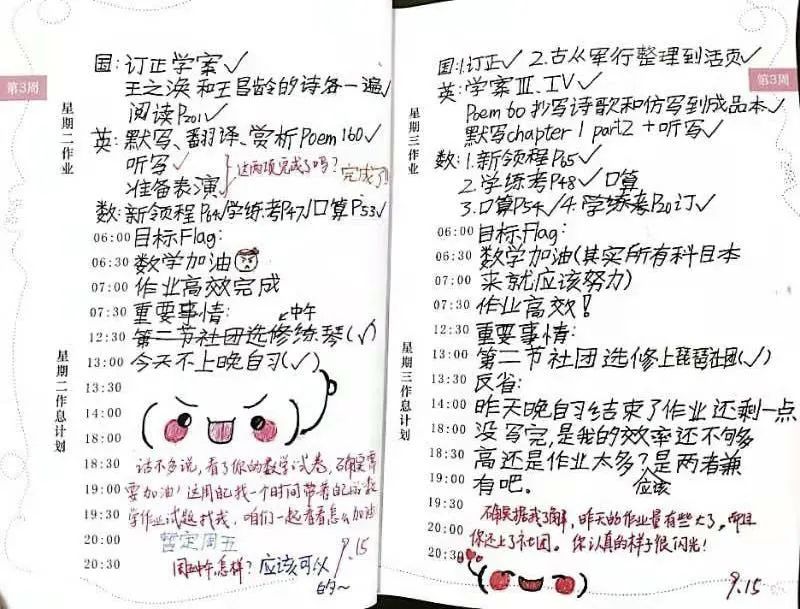 第3周
星期二作业
国:订正学案✓
王之涣和王昌龄的诗各一遍✓
阅读P201✓
英:默写、翻译、赏析Poem 160✓
听写✓
准备表演✓
这两项完成了吗?
完成了!
数:新领程P64✓学练考P47✓口算P53✓
06:00 目标Flag:
06:30 数学加油
07:00 作业高效完成
07:30 重要事情:
中午
12:30 第二节社团选修练琴(✓)
13:00 今天不上晚自习(✓)
13:30
14:00
18:00
18:30
19:00
19:30
20:00
20:30
星期二作息计划
话不多说,看了你的数学试卷,确实需
要加油!这周自己找一个时间带着自己的数
学作业试题找我,咱们一起看看怎么加油
暂定周五
周五中午怎样?
应该可以的~
9.15
第3周
星期三作业
国:1.订正✓ 2.古从军行整理到活页✓
英:学案Ⅲ、Ⅳ✓
Poem 60 抄写诗歌和仿写到成品本✓
默写chapter 1 part2 +听写✓
数:1.新领程P65✓
2.学练考P48✓ 口算
3.口算P54✓ 4.学练考P20订✓
06:00 目标Flag:
06:30 数学加油(其实所有科目本
07:00 来就应该努力)
07:30 作业高效!
12:30 重要事情:
13:00 第二节社团选修上琵琶社团(✓)
13:30 反省:
14:00 昨天晚自习结束了作业还剩一点
18:00 没写完,是我的效率还不够
18:30 高还是作业太多?应该是两者兼
19:00 有吧。
19:30
20:00
20:30
星期三作息计划
确实据我了解,昨天的作业量有些大了,而且
你还上了社团。你认真的样子很闪光!
9.15